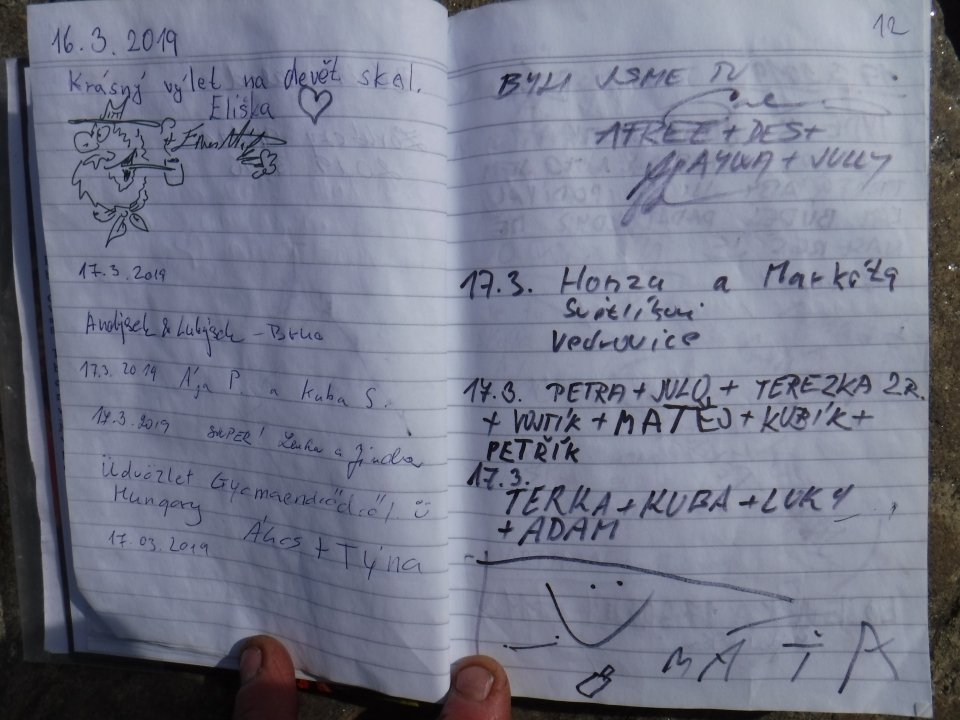 16.3.2019
Krásný výlet na devět skal.
Eliška
17.3.2019
Andýsek & Lubýsek - Brno
17.3.2019 Ája P. a Kuba S.
17.3.2019 SUPER! Lenka a Jindra
Üdvözlet
Hungary
17.03.2019 Ákos + Týna
12
BYLI JSME TU
AFREE + DES +
+ JULLY
17.3. Honza a Markéta
Světlíkovi
Vedrovice
17.3. PETRA + JULO, + TEREZKA 2R.
+ VOJTÍK + MATĚJ + KUBÍK +
PETŘÍK
17.3.
TERKA + KUBA + LUKY
+ ADAM
MATIA